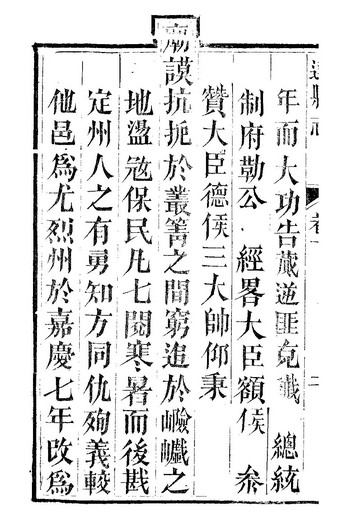 達縣志 卷一 二
年而大功告蕆逆匪克殲 總統
制府勒公 經畧大臣額侯 叅
贊大臣德侯三大帥仰秉
廟謨抗扼於叢箐之間窮追於巉巇之
地盪冦保民凡七閱寒暑而後戡
定州人之有勇知方同仇殉義較
他邑爲尤烈州於嘉慶七年改爲